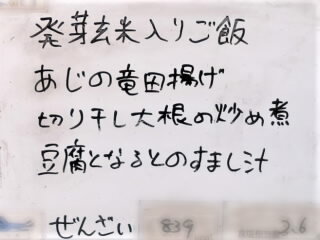 発芽玄米入りご飯
あじの竜田揚げ
切り干し大根の炒め煮
豆腐となるとのすまし汁
ぜんざい 839 2.6